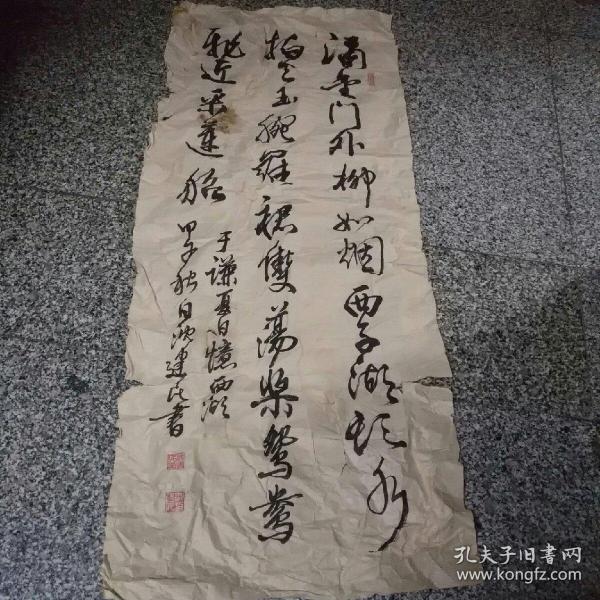 涌金门外柳如烟西子湖头水
拍天玉腕罗裙雙荡桨鸳鸯
飛近采莲船
于谦夏日憶西湖
甲子秋日沈建民書
孔夫子旧書网
www.kongfz.com